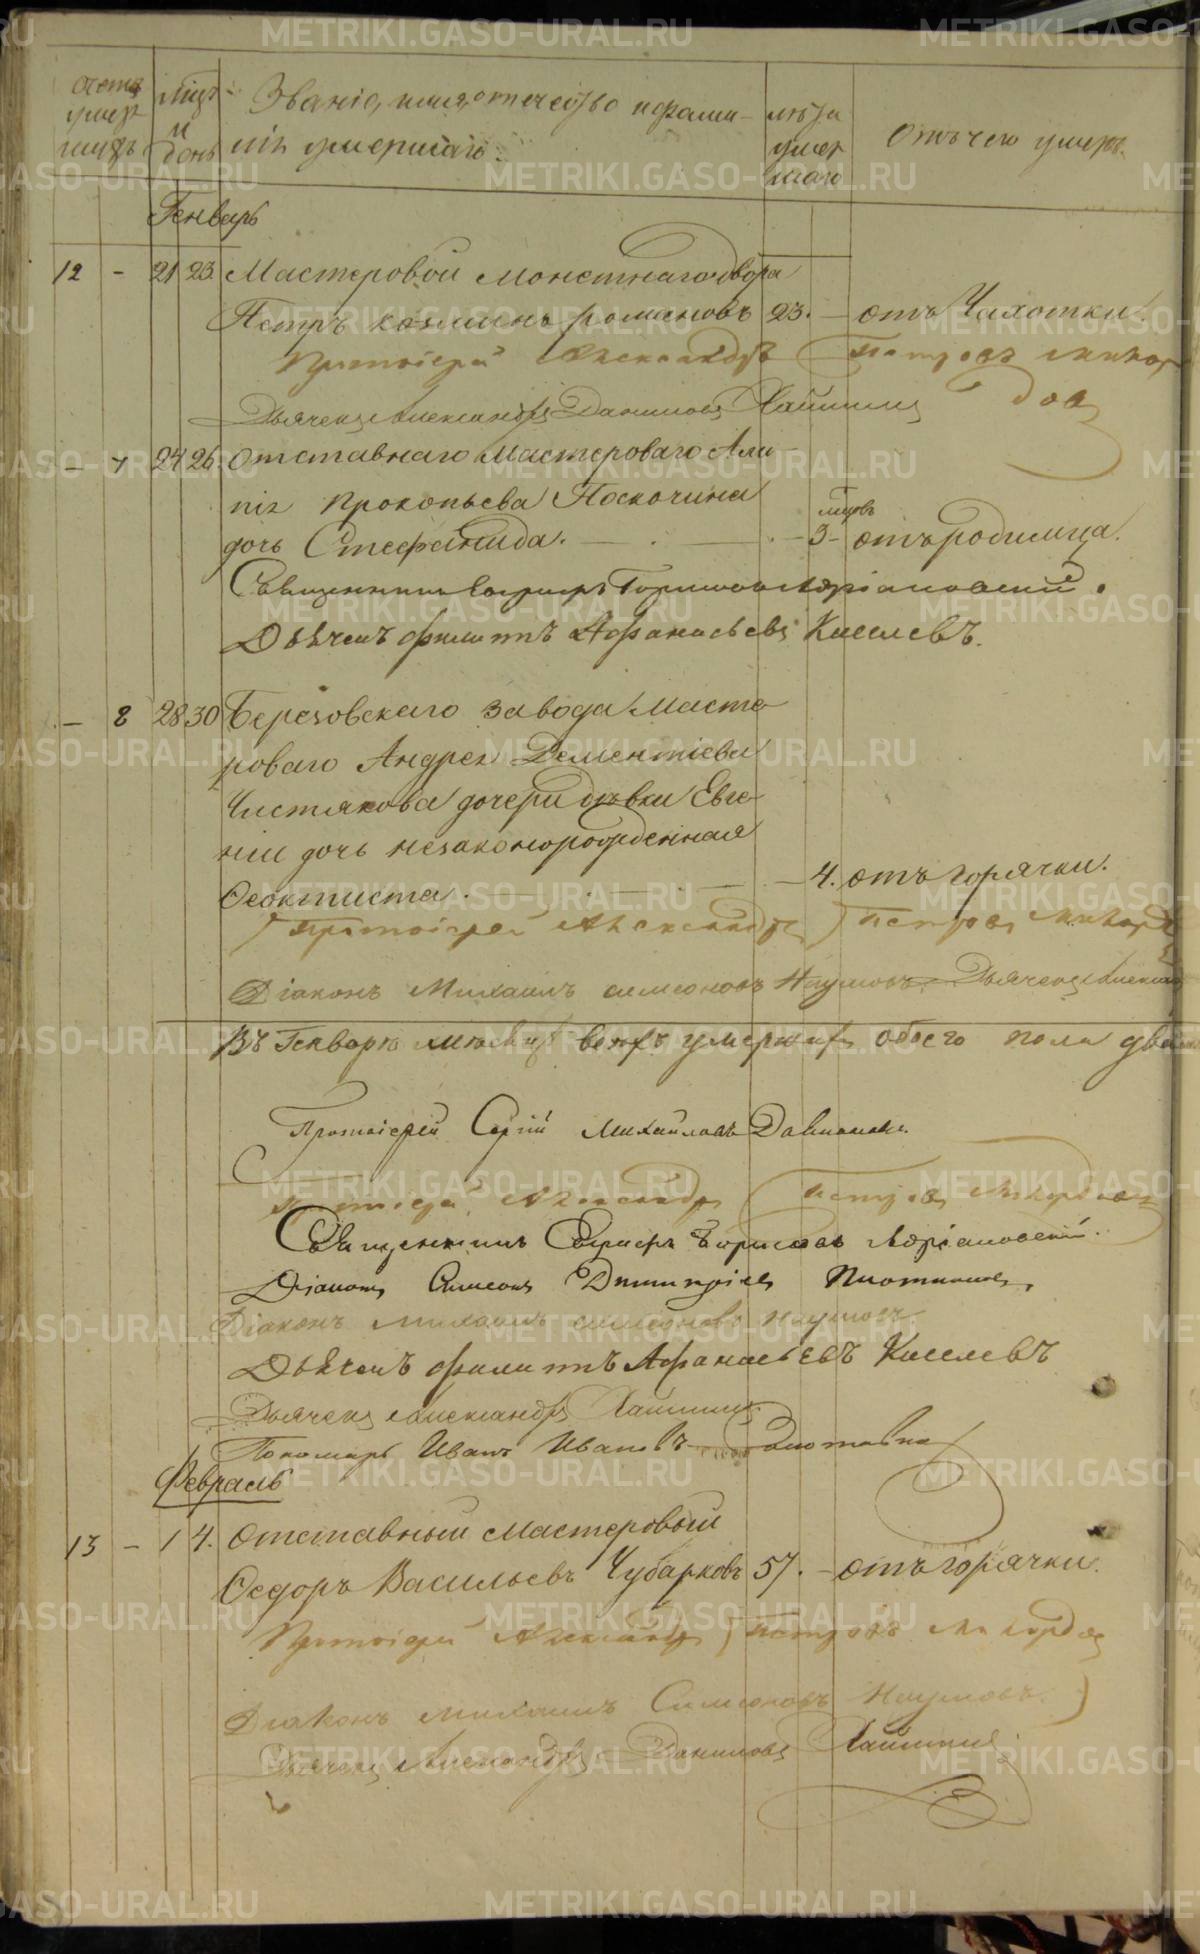 METRIKI.GASO-URAL.RU
Счетъ умер шихъ
Мцъ и день
Званіе, имя, отечество и фами-
лія умершаго.
лѣта умер шаго
отъ чего умеръ.
Генварь
12 - 21 23 Мастеровой монетнаго двора
Петръ козминъ романовъ 23. — отъ Чахотки.
Протоіерей Александръ Петровъ
Дьячекъ Александръ Даниловъ
- 7 24 26 Отставнаго Мастероваго Али-
пія Прокопьева Поскочина
мцовъ
дочь Стефанида. — 3 - отъ родимца.
Священникъ
Дьячекъ филиппъ Афанасьевъ Киселевъ.
- 8 28 30 Березовскаго завода Масте-
роваго Андрея Дементіева
Чистякова дочери дѣвки Евге-
ніи дочь незаконорожденная
Феоктиста. — 4. отъ горячки.
Протоіерей Александръ Петровъ
Діаконъ Михаилъ симеоновъ Наумовъ. Дьячекъ
Въ Генварѣ мѣсяцѣ всехъ умершихъ обоего пола
Протоіерей Сергій Михайловъ
Протоіерей Александръ Петровъ
Священникъ
Діаконъ Симеонъ Димитріевъ Плотниковъ
Діаконъ Михаилъ симеоновъ Наумовъ.
Дьячекъ филиппъ Афанасьевъ Киселевъ
Дьячекъ Александръ
Пономарь Иванъ Ивановъ
Февраль
13 - 1 4. Отставный мастеровый
Федоръ Васильевъ Чубарковъ 57. — отъ горячки.
Протоіерей Александръ Петровъ
Діаконъ Михаилъ Симеоновъ Наумовъ.
Дьячекъ Александръ Даниловъ